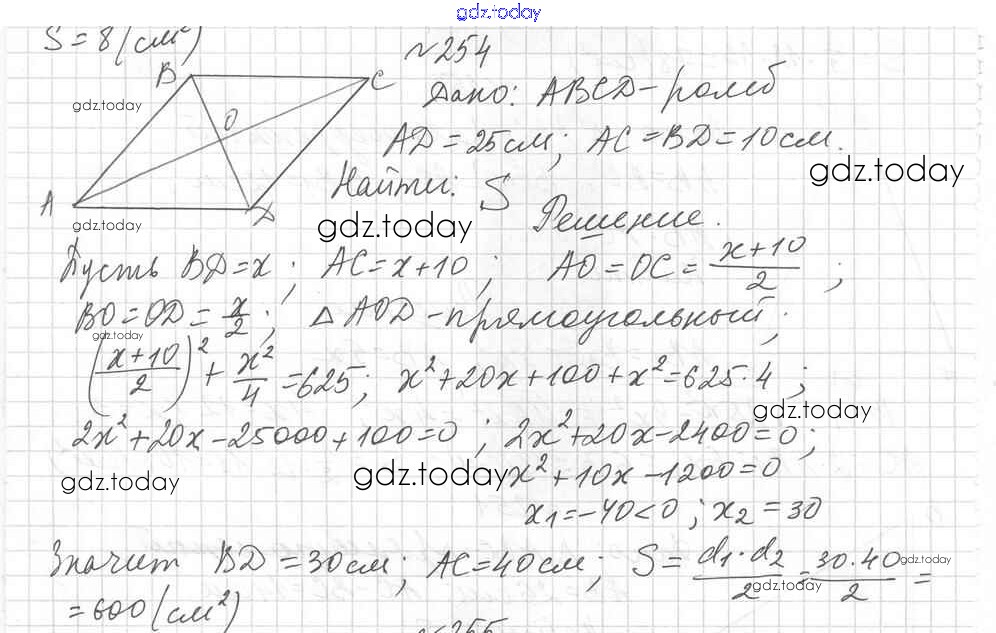 gdz.today
S = 8 (см²)
№254
B C
gdz.today
O
Дано: ABCD – ромб
AD = 25 см; AC = BD = 10 см.
gdz.today
Найти: S
A D
gdz.today
gdz.today
Решение.
Пусть BD = x; AC = x+10; AO = OC = (x+10)/2;
BO = OD = x/2; △ AOD – прямоугольный;
gdz.today
((x+10)/2)² + x²/4 = 625; x² + 20x + 100 + x² = 625·4;
gdz.today
2x² + 20x – 25000 + 100 = 0; 2x² + 20x – 2400 = 0;
gdz.today
gdz.today
x² + 10x – 1200 = 0
x₁ = –40 < 0; x₂ = 30
Значит BD = 30 см; AC = 40 см; S = (d₁·d₂)/2 = (30·40)/2 =
gdz.today
gdz.today
= 600 (см²)
№255